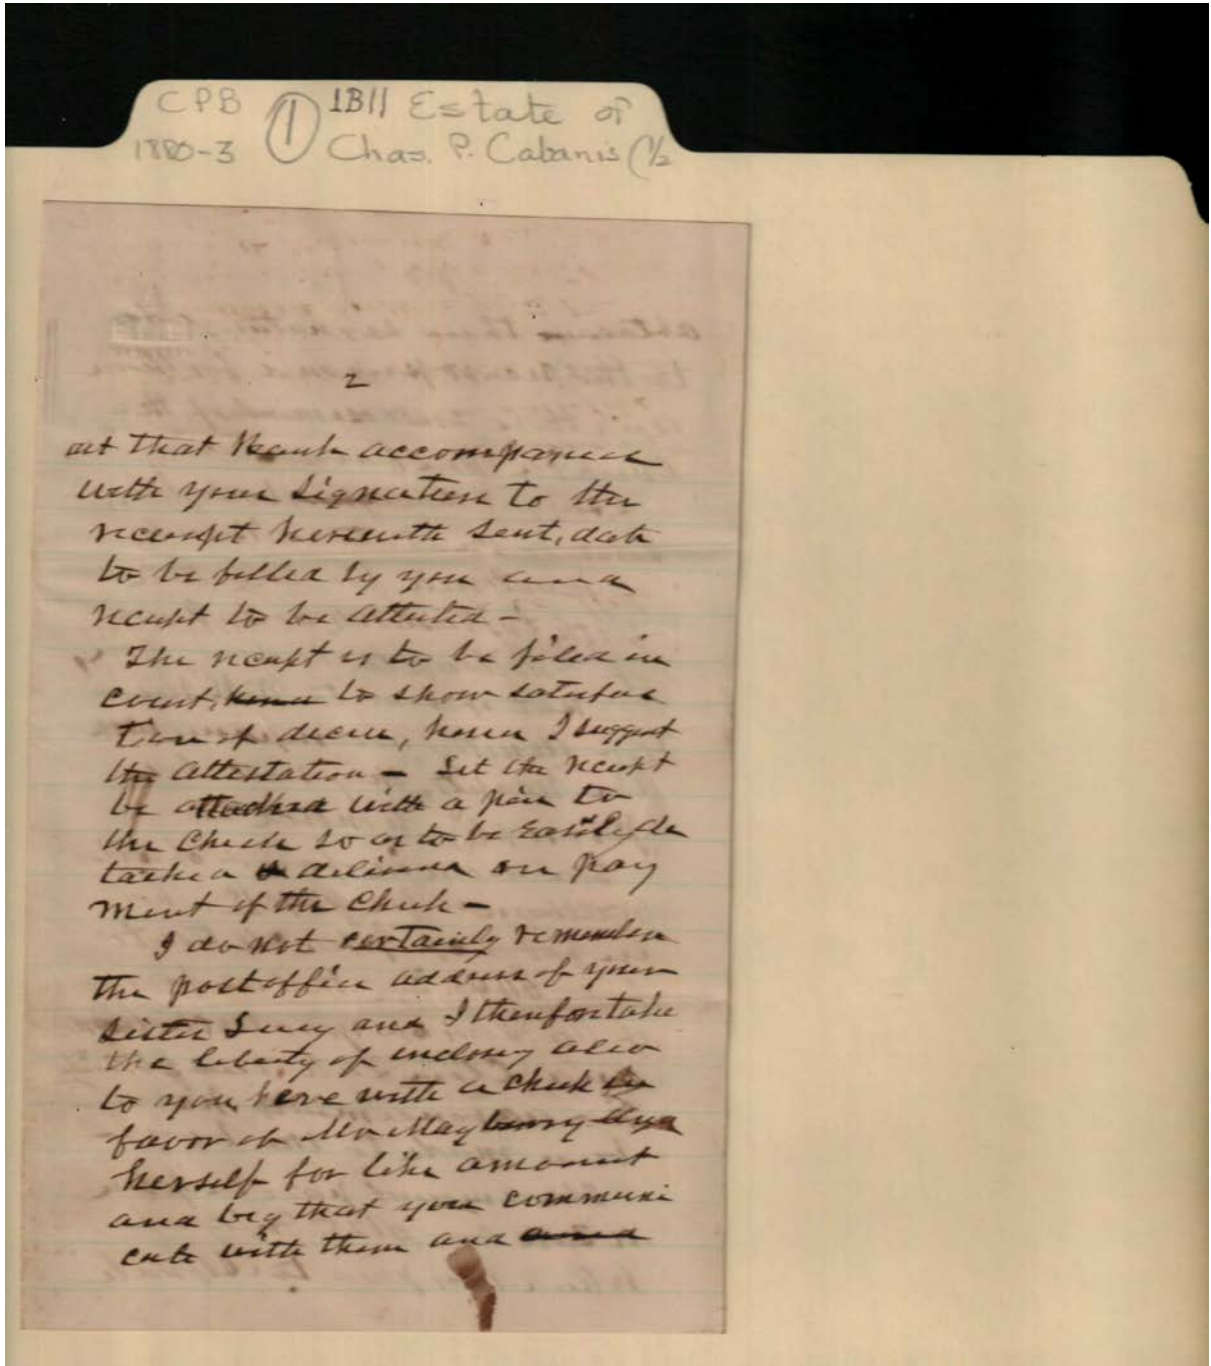 CPB ① 1B11 Estate of
1880-3 Chas. P. Cabanis (1/2
2
at that Bank accompanied
with your signature to the
receipt herewith sent, date
to be filled by you and
receipt to be attested -
The receipt is to be filed in
court, to show satisfac
tion of decree, hence I suggest
the attestation - Let the receipt
be attached with a pin to
the check so as to be easily de
tached & delivered on pay
ment of the check -
I do not certainly remember
the post office address of your
sister Lucy and I therefore take
the liberty of inclosing also
to you here with a check in
favor of Mr Mayberry and
herself for like amount
and beg that you communi
cate with them and